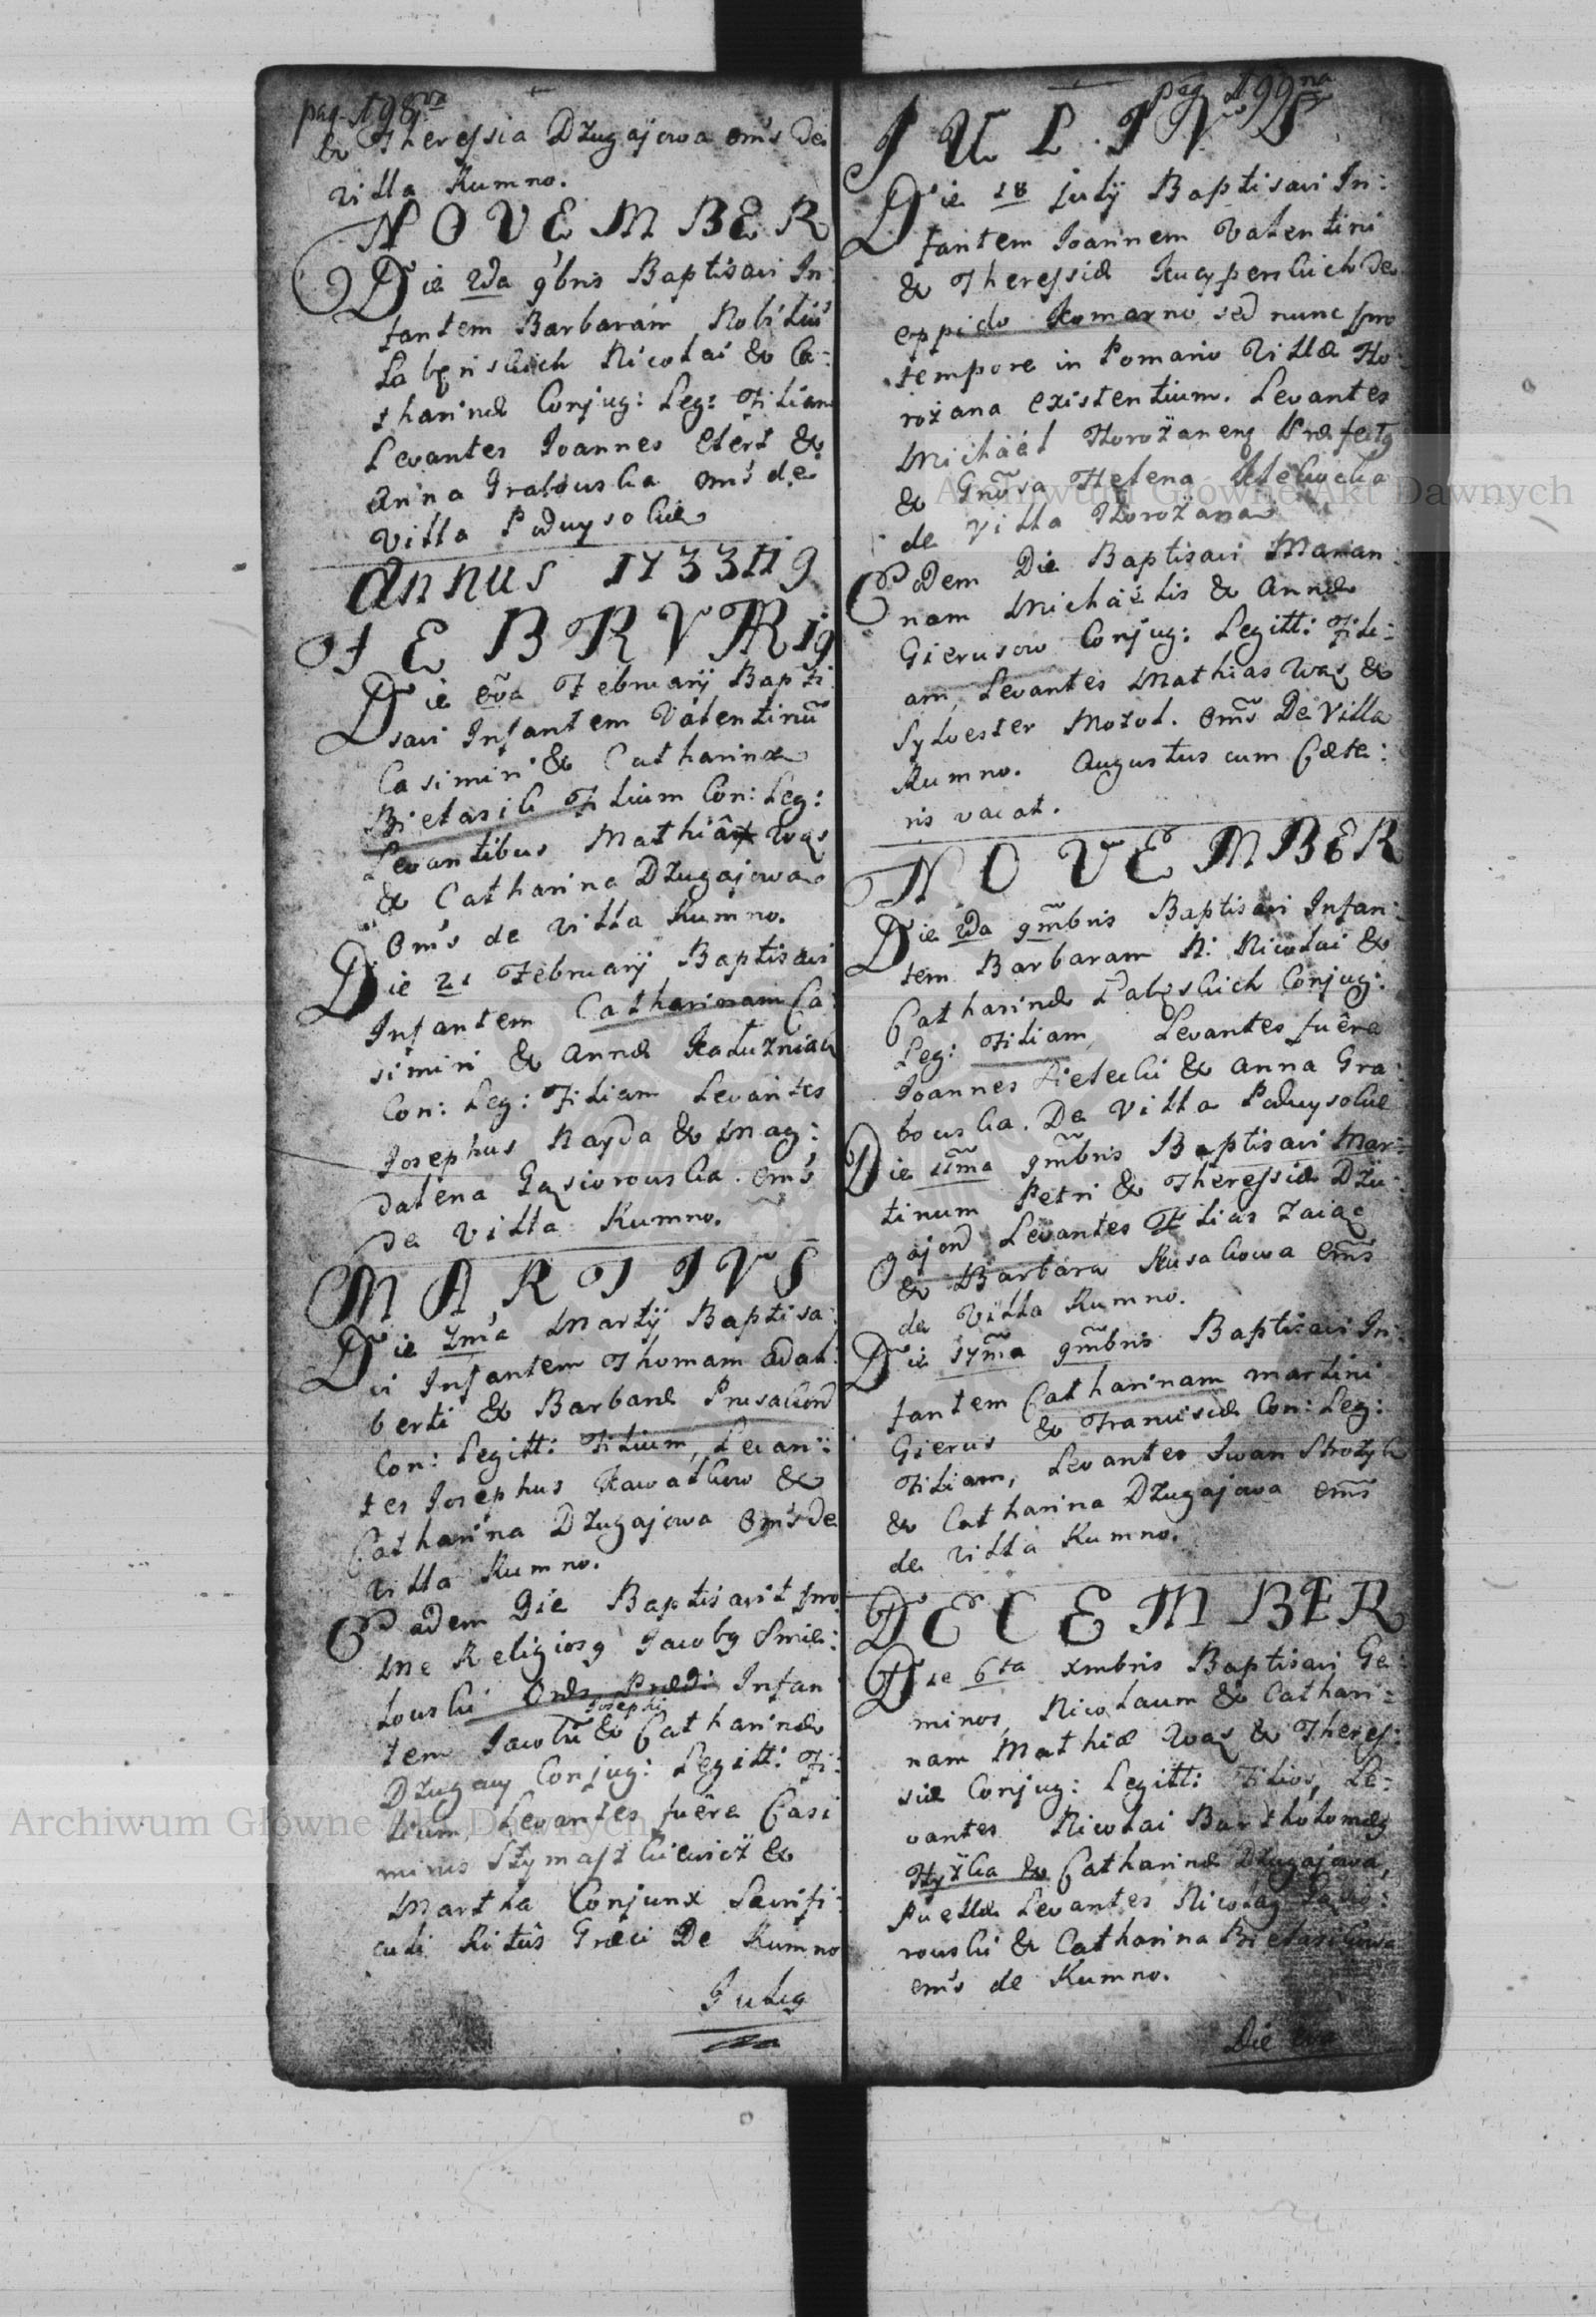 pag. 198va
& Theressia Dzugajowa oms de
villa Rumno.
NOVEMBER
Die 2da 9bris Baptisavi In:
fantem Barbaram Nobiliu
Nicolai & Ca:
tharinæ Conjug: Leg: Filiam
Levantes Joannes &
Anna Grabouska oms de
Villa Poduysokie
Annus 1733tig
FEBRVARIg
Die February Bapti
savi Infantem Valentinu
Casimiri & Catharinæ
Bielasik Filium Con: Leg:
Levantibus Mathia Wąs
& Catharina Dzugajowa
Oms de villa Rumno.
Die 21 February Baptisavi
Infantem Catharinam Ca:
simiri & Annæ Kałuzniak
Con: Leg: Filiam Levantes
Josephus Nayda & Mag:
dalena Gąsiorouska oms
de Villa Rumno.
MARTIVS
Die 7ma Martij Baptisa:
vi Infantem Thomam Adal:
berti & Barbaræ
Con: Legitt: Filium, Levan:
tes Josephus Kawalkow &
Catharina Dzugajowa oms de
villa Rumno.
Eadem Die Baptisavit pro
me Religiosg Jacobg Smie:
louski Ords Prædi: Infan
Josephi
tem Jacobu & Catharinæ
Dzugay Conjug: Legitt: Fi:
lium, Levantes fuêre Casi
mirus &
Martha Conjunx Sacrifi:
culi Ritûs Græci De Rumno
Julig
pag 199na
JULIVS
Die 18 july Baptisavi In:
fantem Joannem Valentini
& Theressiæ de
oppido Komarno sed nunc pro
tempore in Pomario Villæ Ho:
rożana existentium. Levantes
Michaël Horożaneng Præfectg
& Gnosa Helena
de Villa Horożana
Eodem Die Baptisavi Marian:
nam Michaëlis & Annæ
Gierusow Conjug: Legitt: Fili:
am Levantes Mathias Wąs &
Sylvester Motol. oms De Villa
Rumno. Augustus cum Cæte:
ris vacat.
NOVEMBER
Die 2da 9mbris Baptisavi Infan:
tem Barbaram N: Nicolai &
Catharinæ Conjug:
Leg: Filiam Levantes fuêre
Joannes & Anna Gra:
bouska. De Villa Poduysokie
Die 11ma 9mbris Baptisavi Mar:
tinum Petri & Theressiæ Dzu:
gajow Levantes Elias Zaiąc
& Barbara Rusakowa oms
de Villa Rumno.
Die 17ma 9mbris Baptisavi In:
fantem Catharinam Martini
Gierus & Franciscæ Con: Leg:
Filiam, Levantes Iwan Strożyk
& Catharina Dzugajowa oms
de villa Rumno.
DECEMBER
Die 6ta xmbris Baptisavi Ge:
minos, Nicolaum & Cathari:
nam Mathiæ Wąs & Theres:
siæ Conjug: Legitt: Filios, Le:
vantes Nicolai Bartholomæg
Hyżka & Catharina Dzugajowa,
Puellæ Levantes Nicolag
rouski & Catharina Bielasikowa
oms de Rumno.
Die
Archiwum Główne Akt Dawnych
Archiwum Główne Akt Dawnych